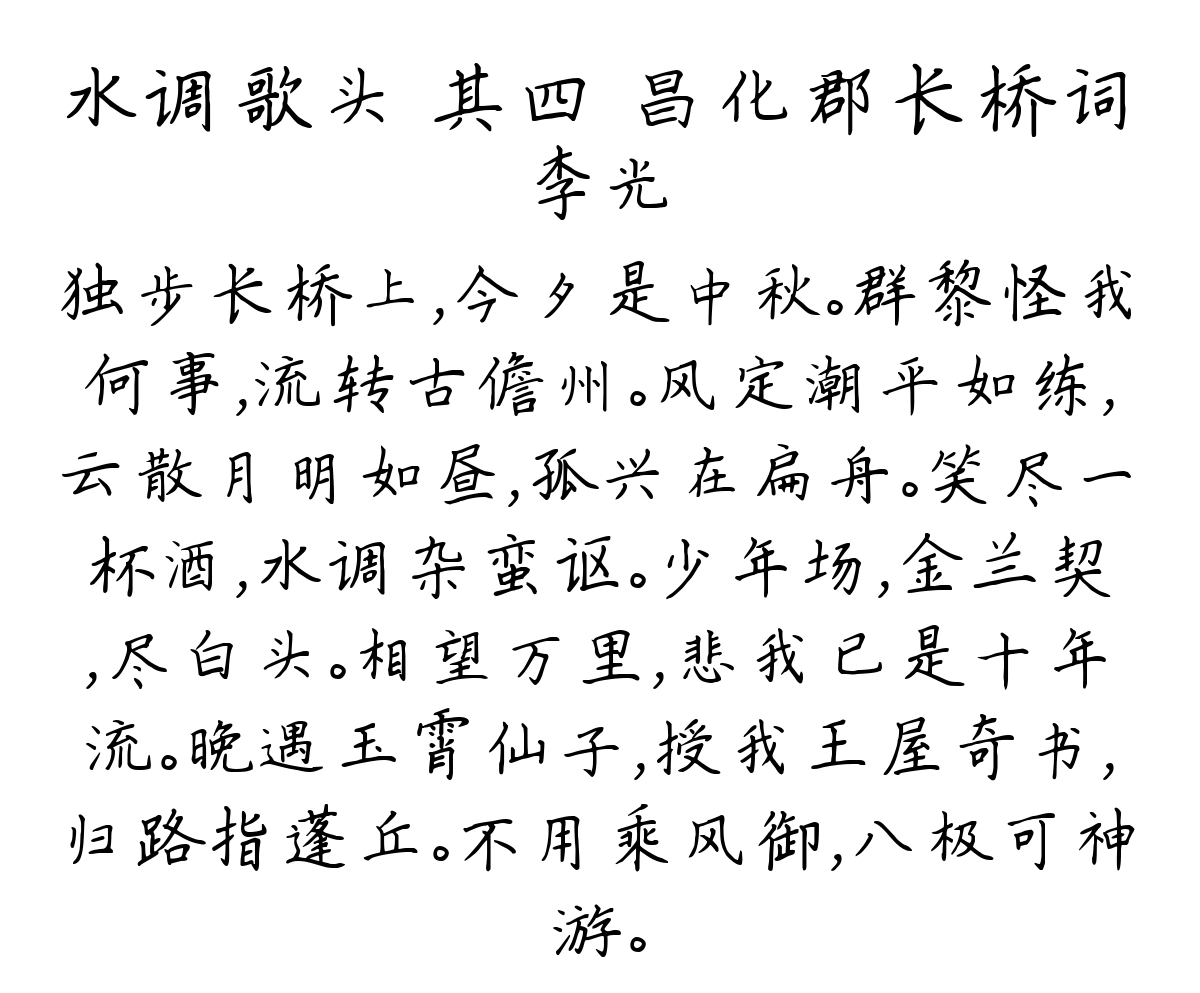 水调歌头 其四 昌化郡长桥词
李光
独步长桥上,今夕是中秋。群黎怪我
何事,流转古儋州。风定潮平如练,
云散月明如昼,孤兴在扁舟。笑尽一
杯酒,水调杂蛮讴。少年场,金兰契
,尽白头。相望万里,悲我已是十年
流。晚遇玉霄仙子,授我王屋奇书,
归路指蓬丘。不用乘风御,八极可神
游。